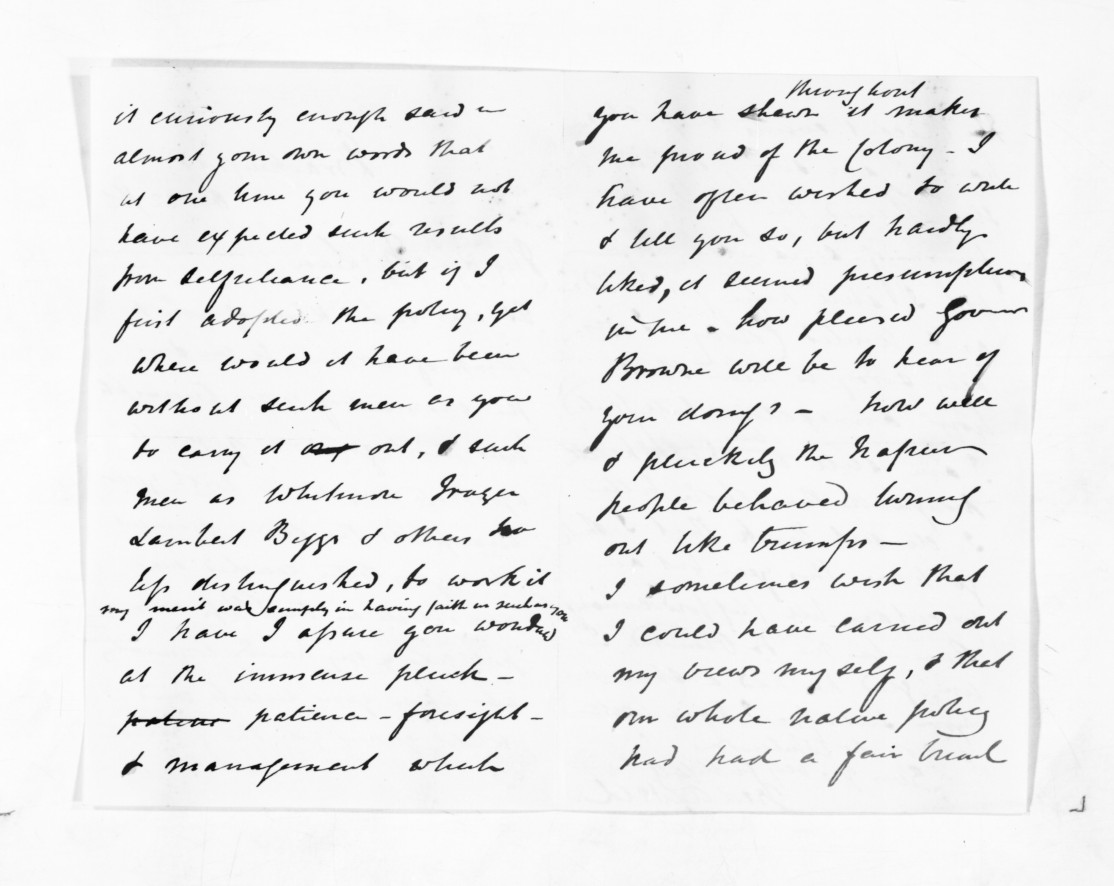 it curiously enough said in
almost your own words that
at one time you would not
have expected such results
from selfreliance, but if I
first adopted the policy, yet
where would it have been
without such men as you
to carry it any out, & such
men as Whitmore Frazer
Lambert Biggs & others no
less distinguished, to work it
my merit was simply in having faith in such as you
I have I assure you wondered
at the immense pluck -
patience patience - foresight -
& management which
throughout
you have shewn it makes
me proud of the Colony - I
have often wished to write
& tell you so, but hardly
liked, it seemed presumptuous
in me - how pleased Governor
Browne will be to hear of
your doings - how well
& pluckily the Napier
people behaved turning
out like trumps -
I sometimes wish that
I could have carried out
my views myself, & that
our whole native policy
had had a fair trial